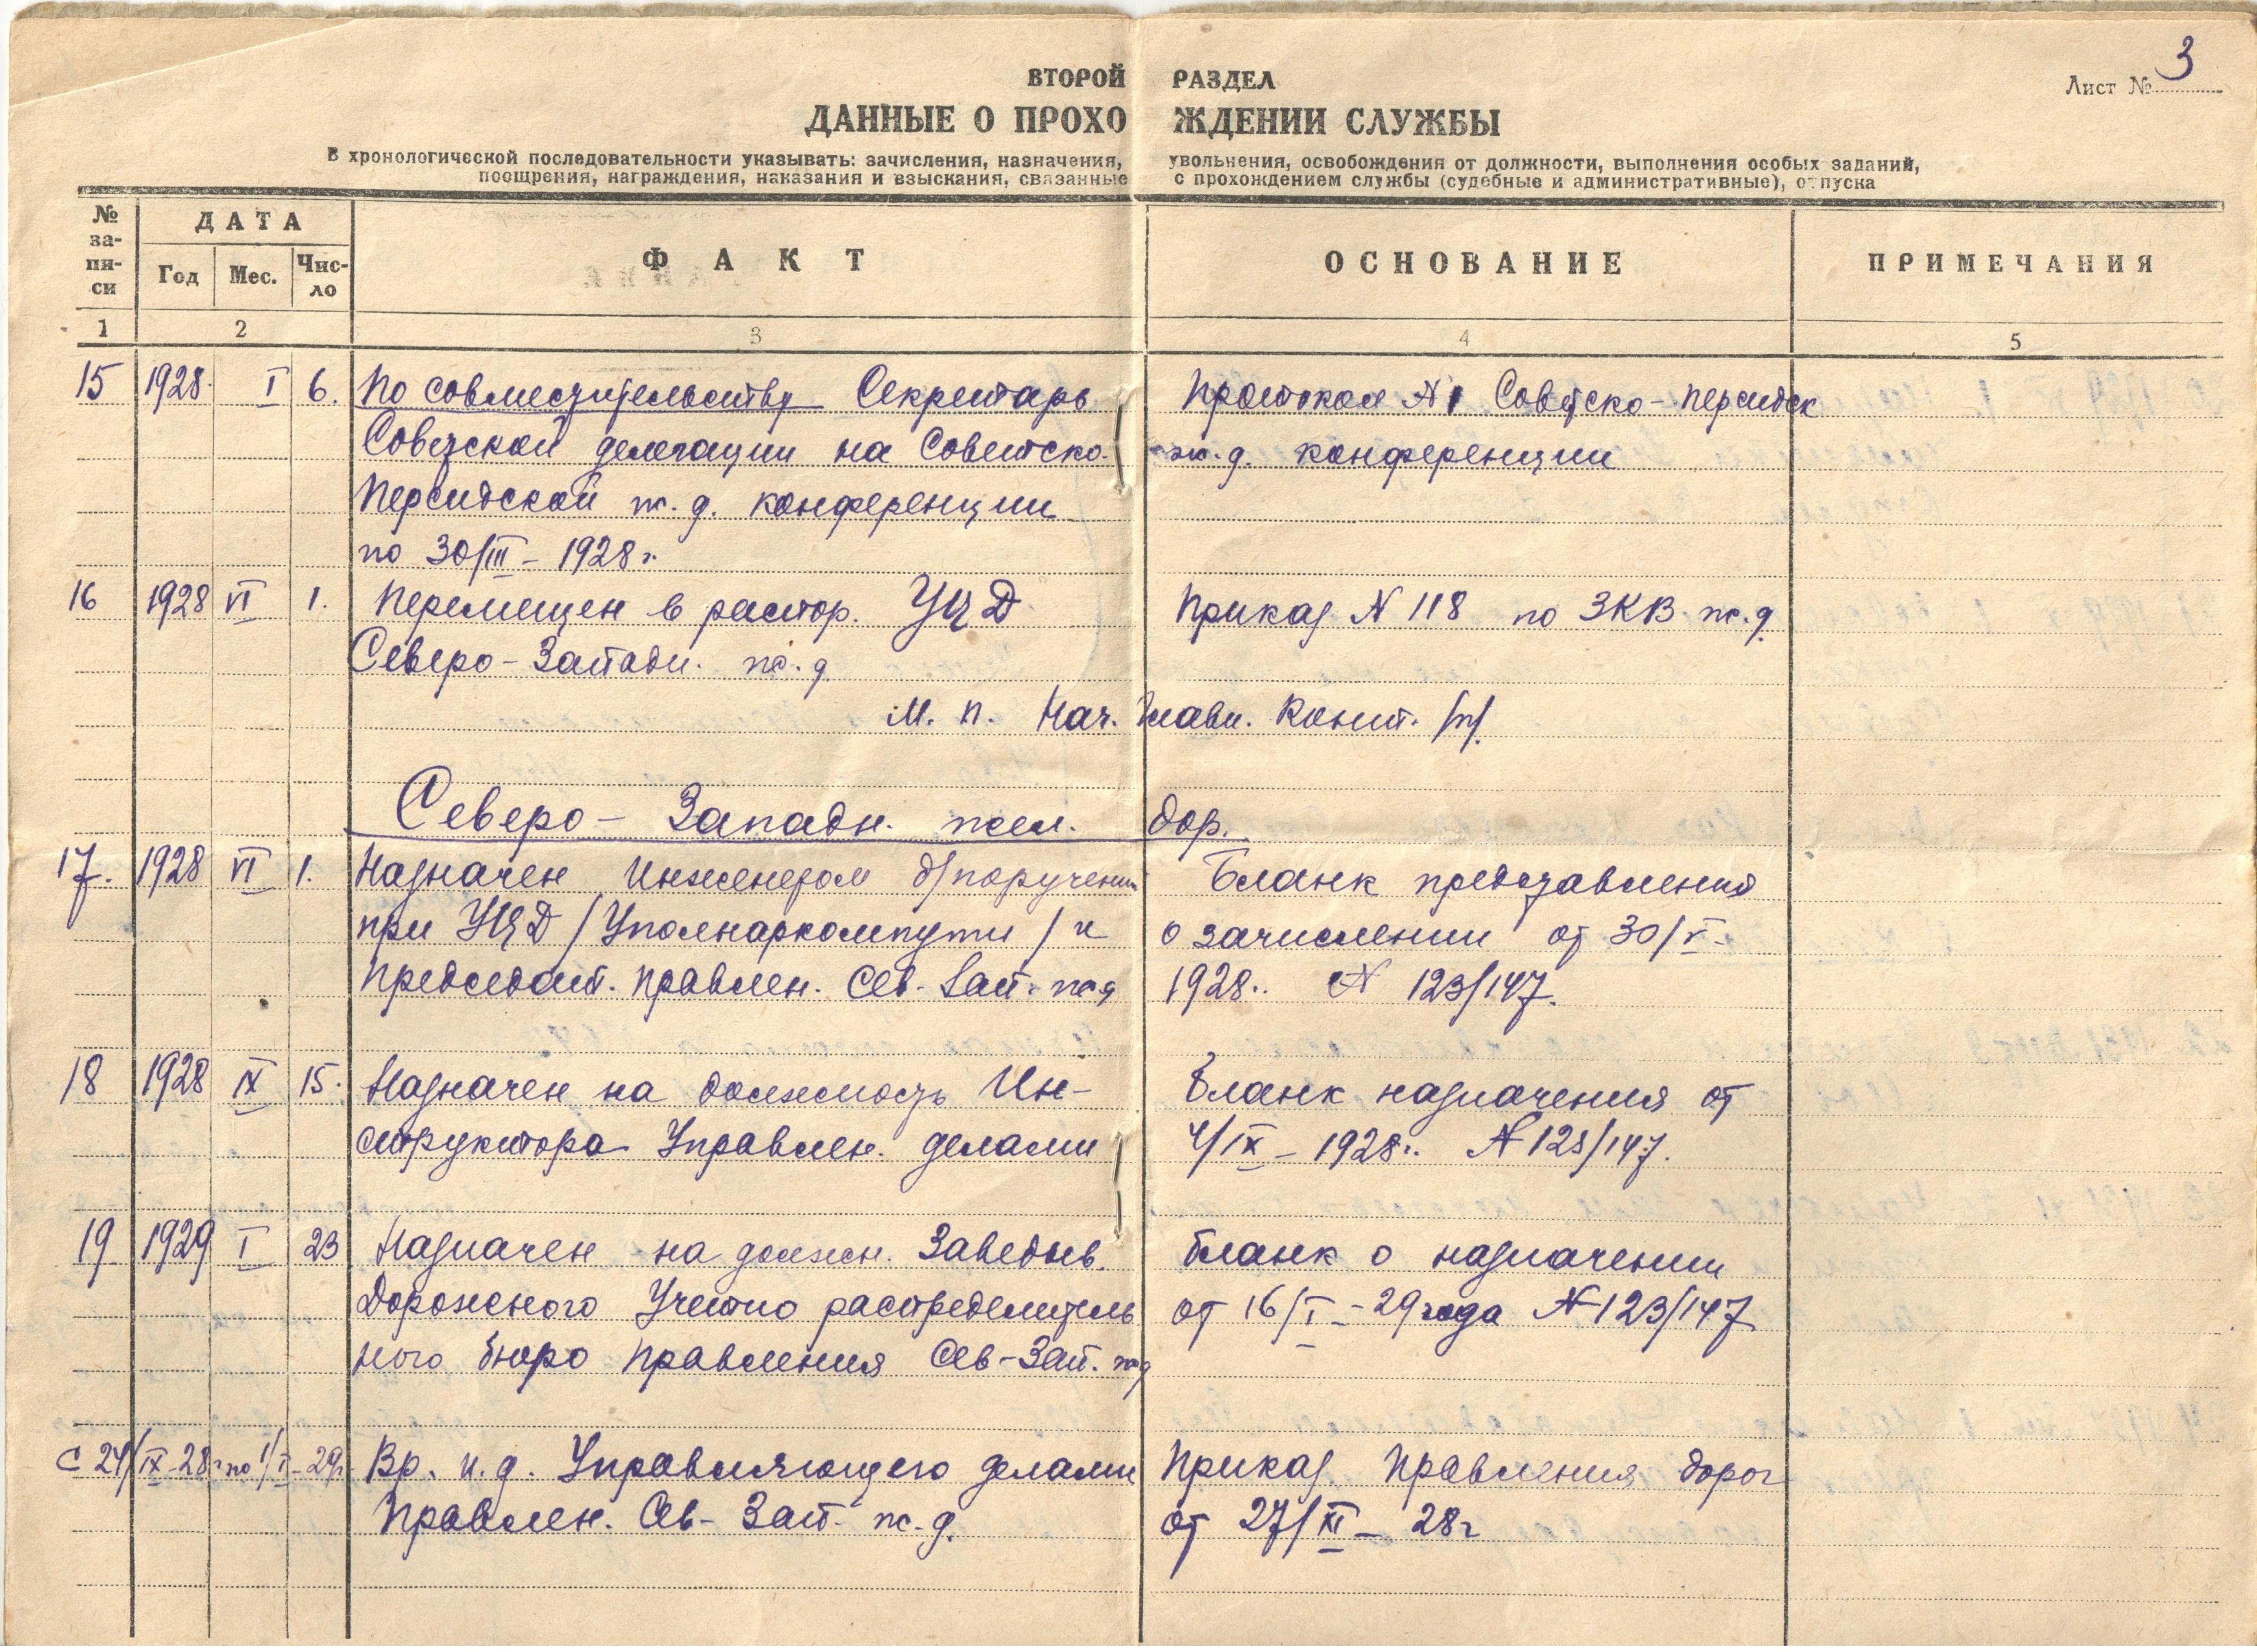 Лист № 3
ВТОРОЙ РАЗДЕЛ
ДАННЫЕ О ПРОХОЖДЕНИИ СЛУЖБЫ
В хронологической последовательности указывать: зачисления, назначения, увольнения, освобождения от должности, выполнения особых заданий,
поощрения, награждения, наказания и взыскания, связанные с прохождением службы (судебные и административные), отпуска
№ за-пи-си ДАТА ФАКТ ОСНОВАНИЕ ПРИМЕЧАНИЯ
Год Мес. Чис-ло
1 2 3 4 5
15 1928. I 6. По совместительству Секретарь Протокол №1 Советско-Персидск
Советской делегации на Советско- ж.д. конференции
Персидской ж.д. конференции
по 30/III – 1928 г.
16 1928 VI 1. Перемещен в распор. УЦД Приказ N 118 по ЗКВ ж.д.
Северо-Западн. ж.д
М. п. Нач. Главн. Конт. /п/.
Северо – Западн. жел. дор.
17. 1928 VI 1. Назначен Инженером д/поручений Бланк представления
при УЦД /Уполнаркомпути/ и о зачислении от 30/V-
Председат. Правлен. Сев-Зап. ж.д 1928г. N 123/147.
18 1928 IX 15. Назначен на должность Ин- Бланк назначения от
структора Управлен. делами 4/IX – 1928г. N 123/147.
19 1929 I 23 Назначен на должн. Заведыв. Бланк о назначении
Дорожного Учетно распределитель от 16/I – 29 года N 123/147
ного бюро Правления Сев-Зап. жд
С 24/IX-28г по 1/I-29г. Вр. и.д. Управляющего делами Приказ Правления дорог
Правлен. Сев-Зап. ж.д. от 27/XI – 28г